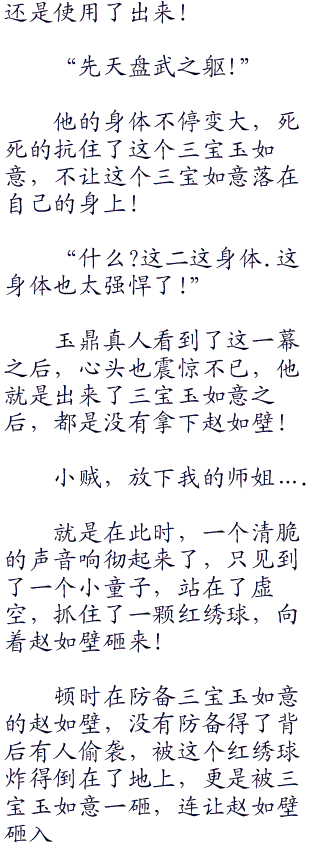 还是使用了出来！
“先天盘武之躯！”
他的身体不停变大，死
死的抗住了这个三宝玉如
意，不让这个三宝如意落在
自己的身上！
“什么？这二这身体．这
身体也太强悍了！”
玉鼎真人看到了这一幕
之后，心头也震惊不已，他
就是出来了三宝玉如意之
后，都是没有拿下赵如壁！
小贼，放下我的师姐…．
就是在此时，一个清脆
的声音响彻起来了，只见到
了一个小童子，站在了虚
空，抓住了一颗红绣球，向
着赵如壁砸来！
顿时在防备三宝玉如意
的赵如壁，没有防备得了背
后有人偷袭，被这个红绣球
炸得倒在了地上，更是被三
宝玉如意一砸，连让赵如壁
砸入